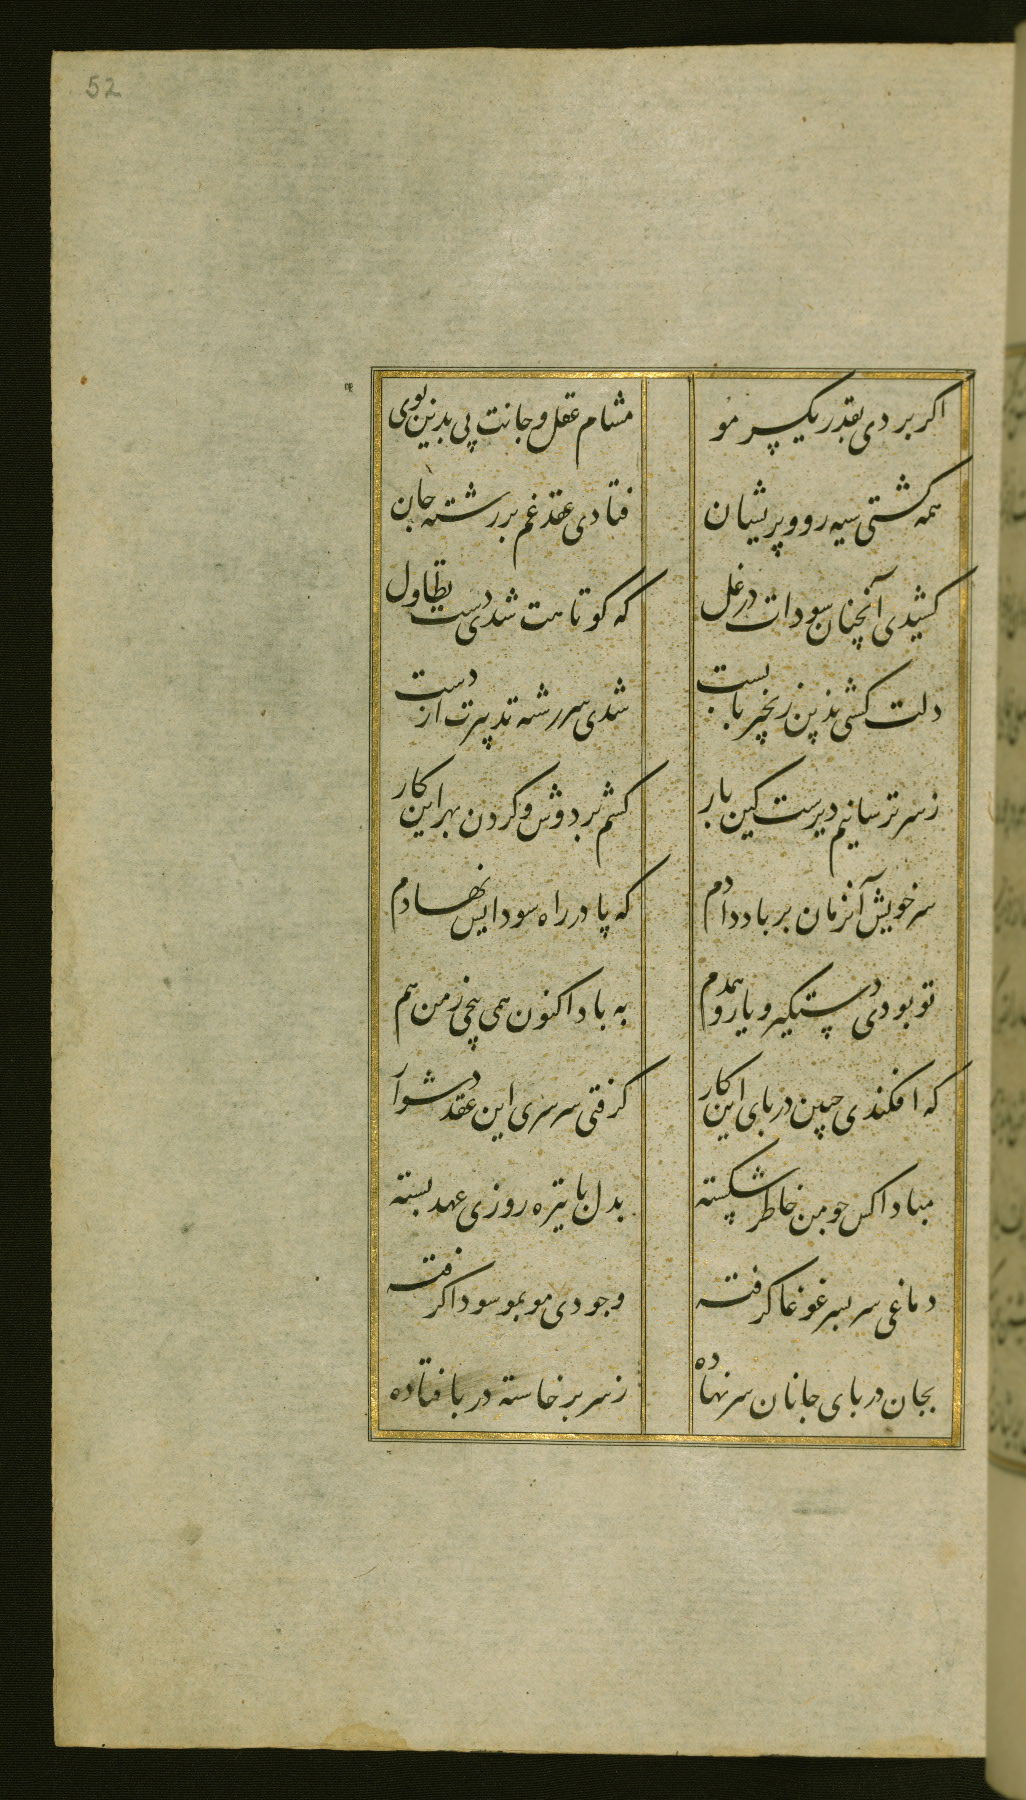 52
اگر بردی بقدر یکسر مو
مشام عقل و جانت پی بدین بوی
همه گشتی سیه رو و پریشان
فتادی عقد غم بر رشته جان
کشیدی آنچنان سودات در غل
که کوتاهت شدی دست تطاول
دلت گشتی بدین زنجیر پابست
شدی سررشته تدبیرت از دست
ز سر ترسانیم دیرست کین بار
کشم بر دوش و گردن بهر این کار
سر خویش آنزمان بر باد دادم
که پا در راه سودایش نهادم
تو بودی دستگیر و یار و همدم
به باد اکنون همی پیچی ز من هم
که افکندی چنین در پای این کار
گرفتی سرسری این عقد دشوار
مبادا کس چو من خاطر شکسته
بدل با تیره روزی عهد بسته
دماغی سر بسر غوغا گرفته
وجودی مو بمو سودا گرفته
بجان در پای جانان سر نهاده
ز سر برخاسته در پا فتاده